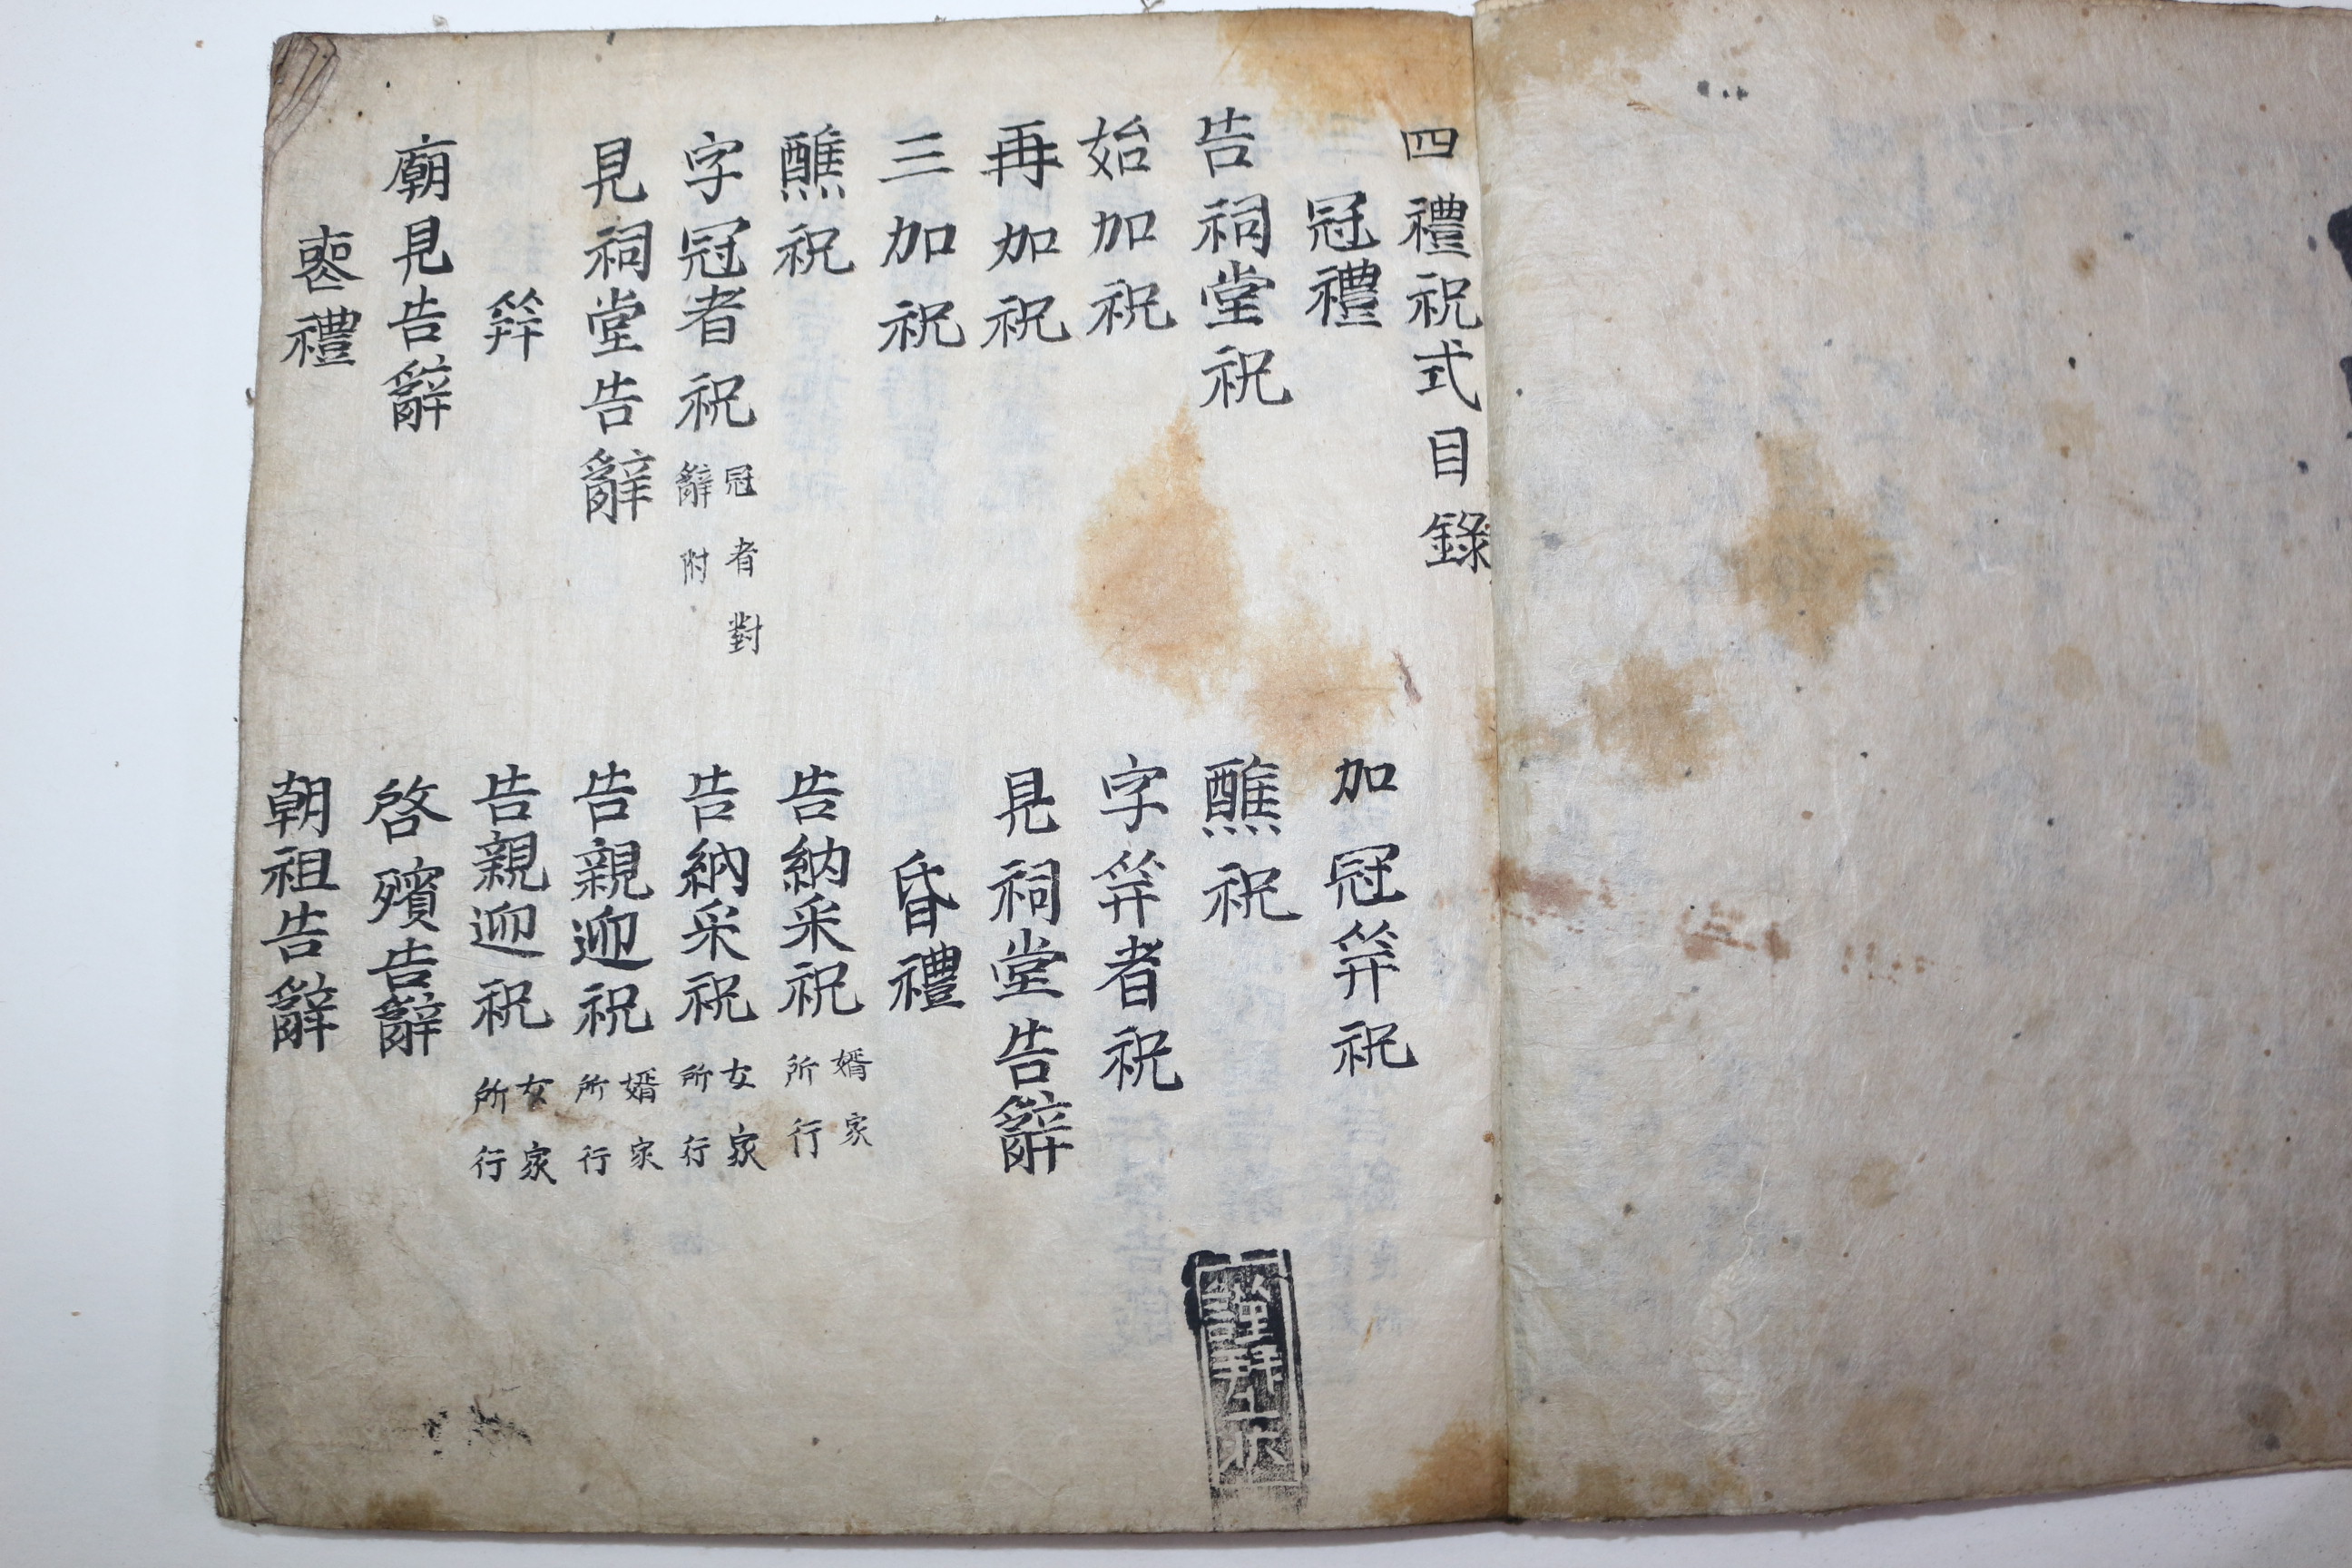 四禮祝式目錄
冠禮
告祠堂祝
始加祝
再加祝
三加祝
醮祝
字冠者祝 冠者對辭附
見祠堂告辭
筓
廟見告辭
喪禮
加冠筓祝
醮祝
字筓者祝
見祠堂告辭
昏禮
告納采祝 婿家所行
告納采祝 女家所行
告親迎祝 婿家所行
告親迎祝 女家所行
啓殯告辭
朝祖告辭